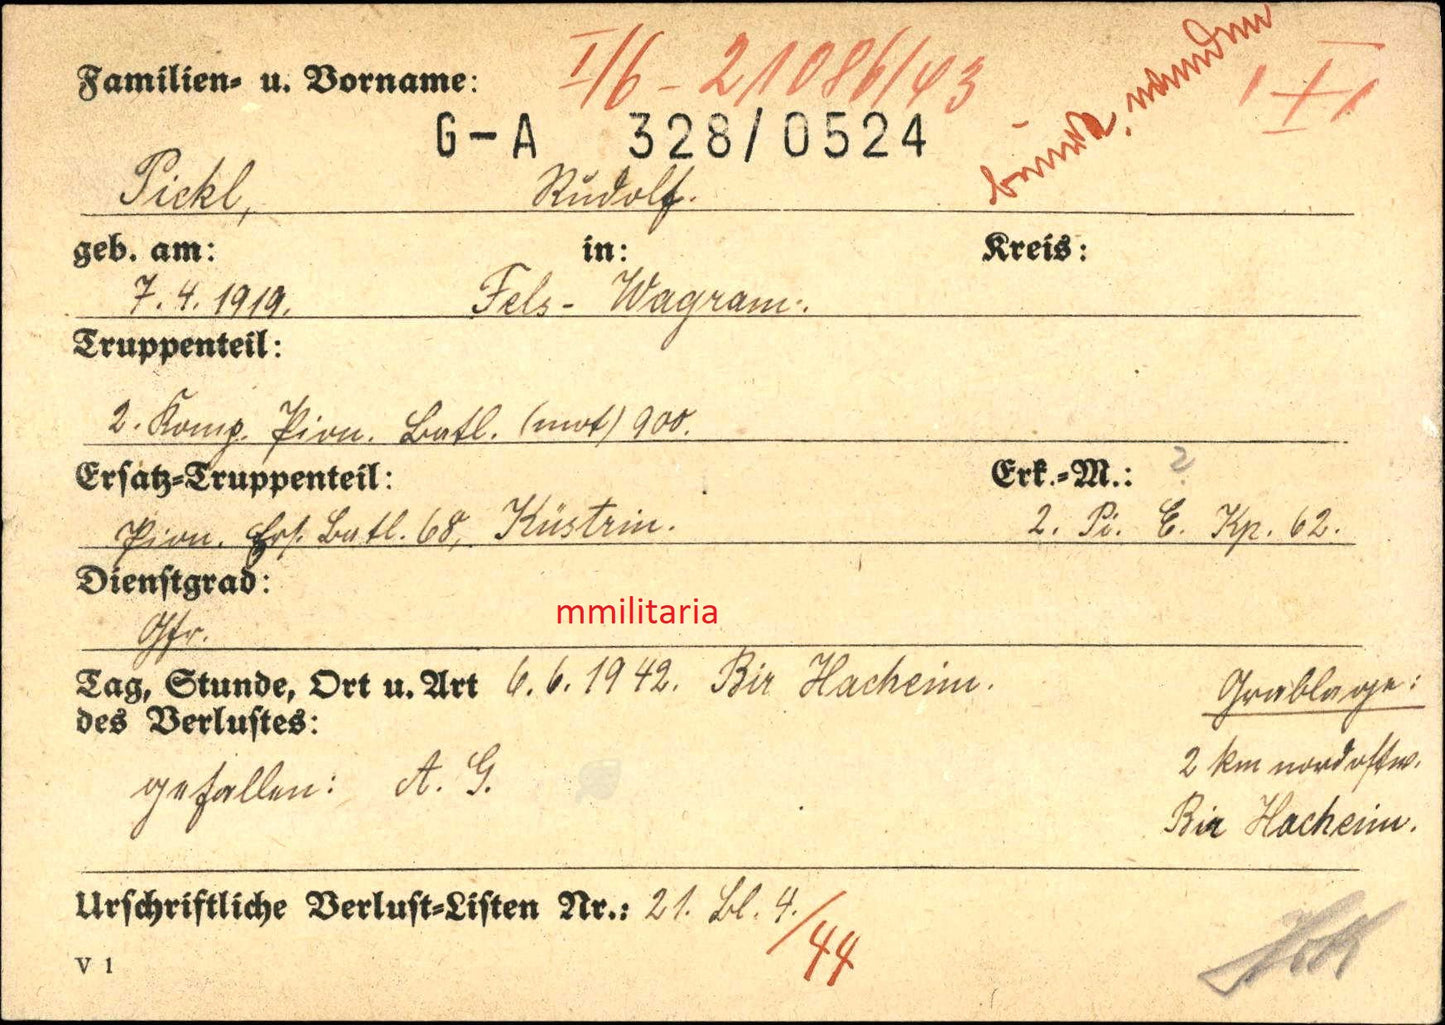 Familien- u. Vorname:
I/6 - 21086/43
G-A 328/0524
Pickl, Rudolf.
geb. am: in: Kreis:
7. 4. 1919. Fels- Wagram.
Truppenteil:
2. Komp. Pion. Batl. (mot) 900.
Ersatz-Truppenteil: Erk.-M.: ?
Pion. Ers. Batl. 68, Küstrin. 2. Pi. E. Kp. 62.
Dienstgrad:
Gfr.
mmilitaria
Tag, Stunde, Ort u. Art 6. 6. 1942. Bir Hacheim.
des Verlustes:
gefallen: A. G.
Grablage:
2 km nordostw.
Bir Hacheim.
Urschriftliche Verlust-Listen Nr.: 21. Bl. 4.
/44
V 1